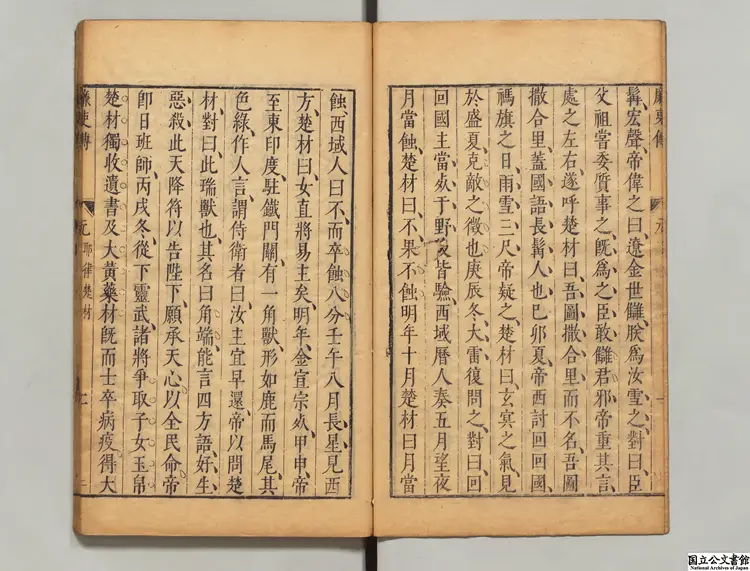 廉吏傳
元
一
髯宏聲帝偉之曰遼金世讎朕為汝雪之對曰臣
父祖嘗委質事之旣為之臣敢讎君邪帝重其言
處之左右遂呼楚材曰吾圖撒合里而不名吾圖
撒合里蓋國語長髯人也巳卯夏帝西討回回國
禡旗之日雨雪三尺帝疑之楚材曰玄冥之氣見
於盛夏克敵之徵也庚辰冬大雷復問之對曰回
回國主當死于野後皆驗西域曆人奏五月望夜
月當蝕楚材曰不果不蝕明年十月楚材曰月當
蝕西域人曰不而卒蝕八分壬午八月長星見西
方楚材曰女直將易主矣明年金宣宗死甲申帝
至東印度駐鐵門關有一角獸形如鹿而馬尾其
色綠作人言謂侍衛者曰汝主宜早還帝以問楚
材對曰此瑞獸也其名曰角端能言四方語好生
惡殺此天降符以告陛下願承天心以全民命帝
卽日班師丙戌冬從下靈武諸將爭取子女玉帛
楚材獨收遺書及大黃藥材旣而士卒病疫得大
廉吏傳
元 耶律楚材
二
国立公文書館
National Archives of Japan